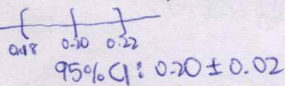 0.18 0.20 0.22
95% CI: 0.20 ± 0.02